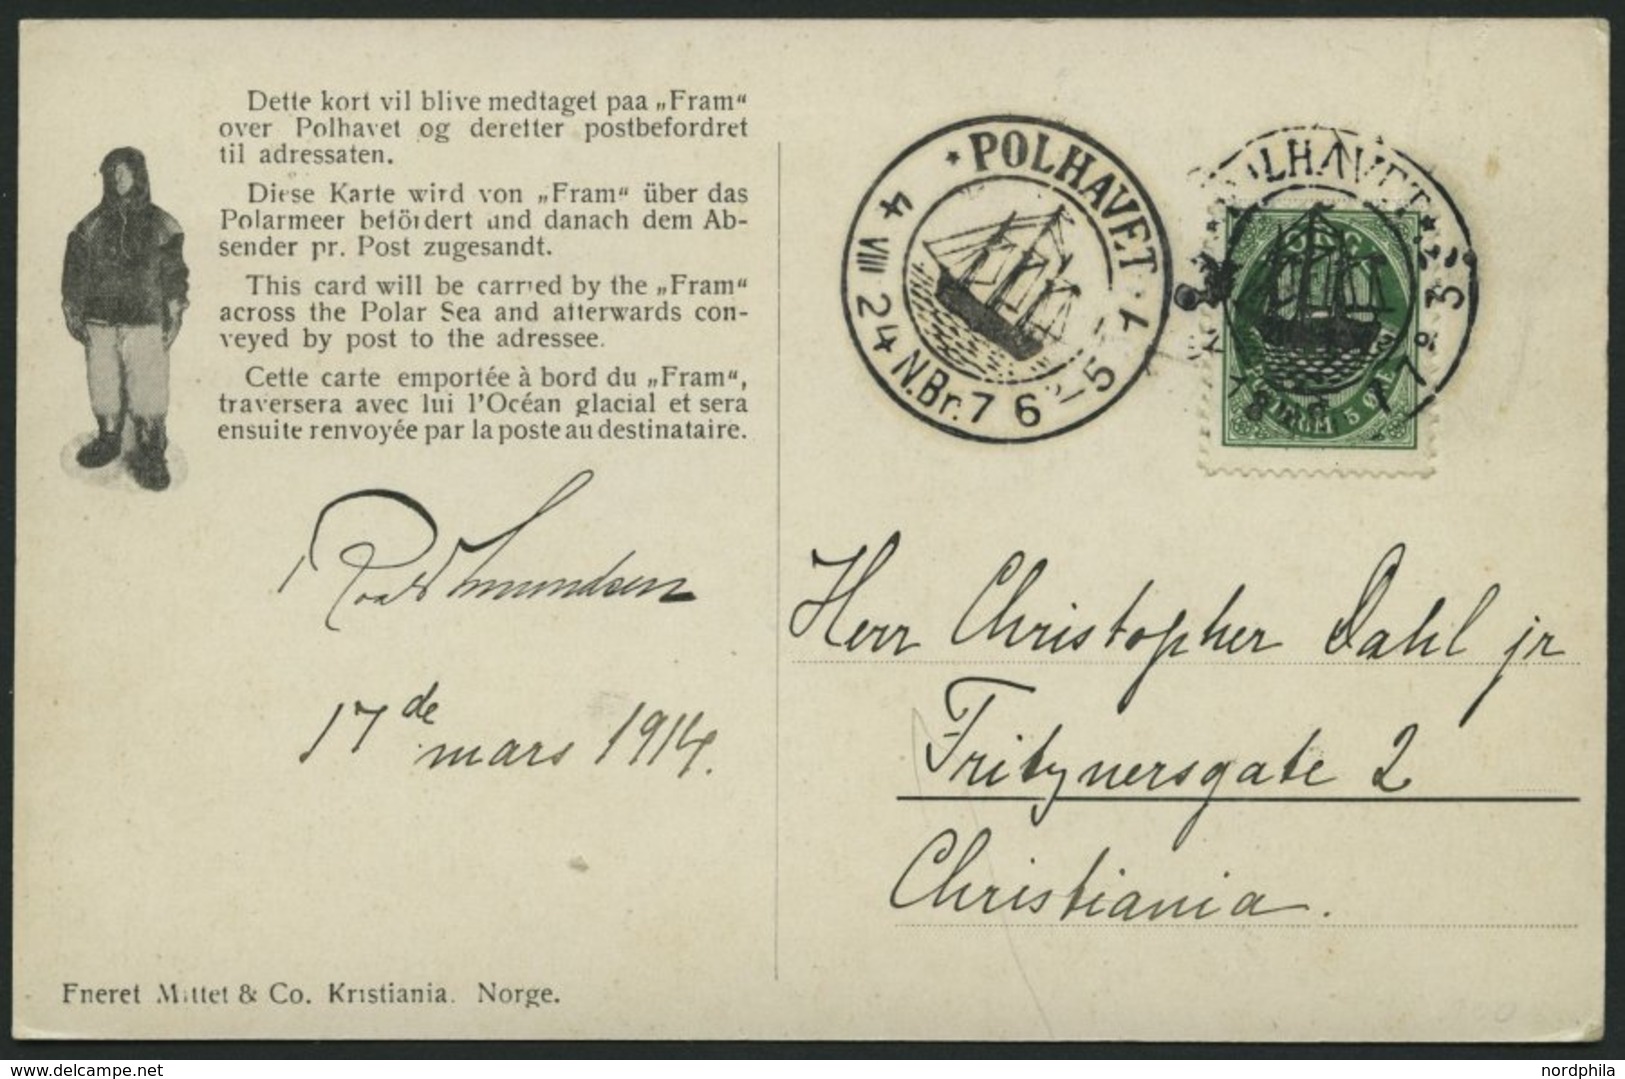 Dette kort vil blive medtaget paa „Fram“
over Polhavet og derefter postbefordret
til adressaten.
Diese Karte wird von „Fram“ über das
Polarmeer befördert und danach dem Ab-
sender pr. Post zugesandt.
This card will be carried by the „Fram“
across the Polar Sea and afterwards con-
veyed by post to the adressee.
Cette carte emportée à bord du „Fram“,
traversera avec lui l'Océan glacial et sera
ensuite renvoyée par la poste au destinataire.
Roald Amundsen
17de mars 1914.
Eneret Mittet & Co. Kristiania. Norge.
* POLHAVET
4 VIII 24 N.Br. 76
POLHAVET
Herr Christopher Dahl jr
Fritznersgate 2
Christiania.
www.delcampe.net
nordphila